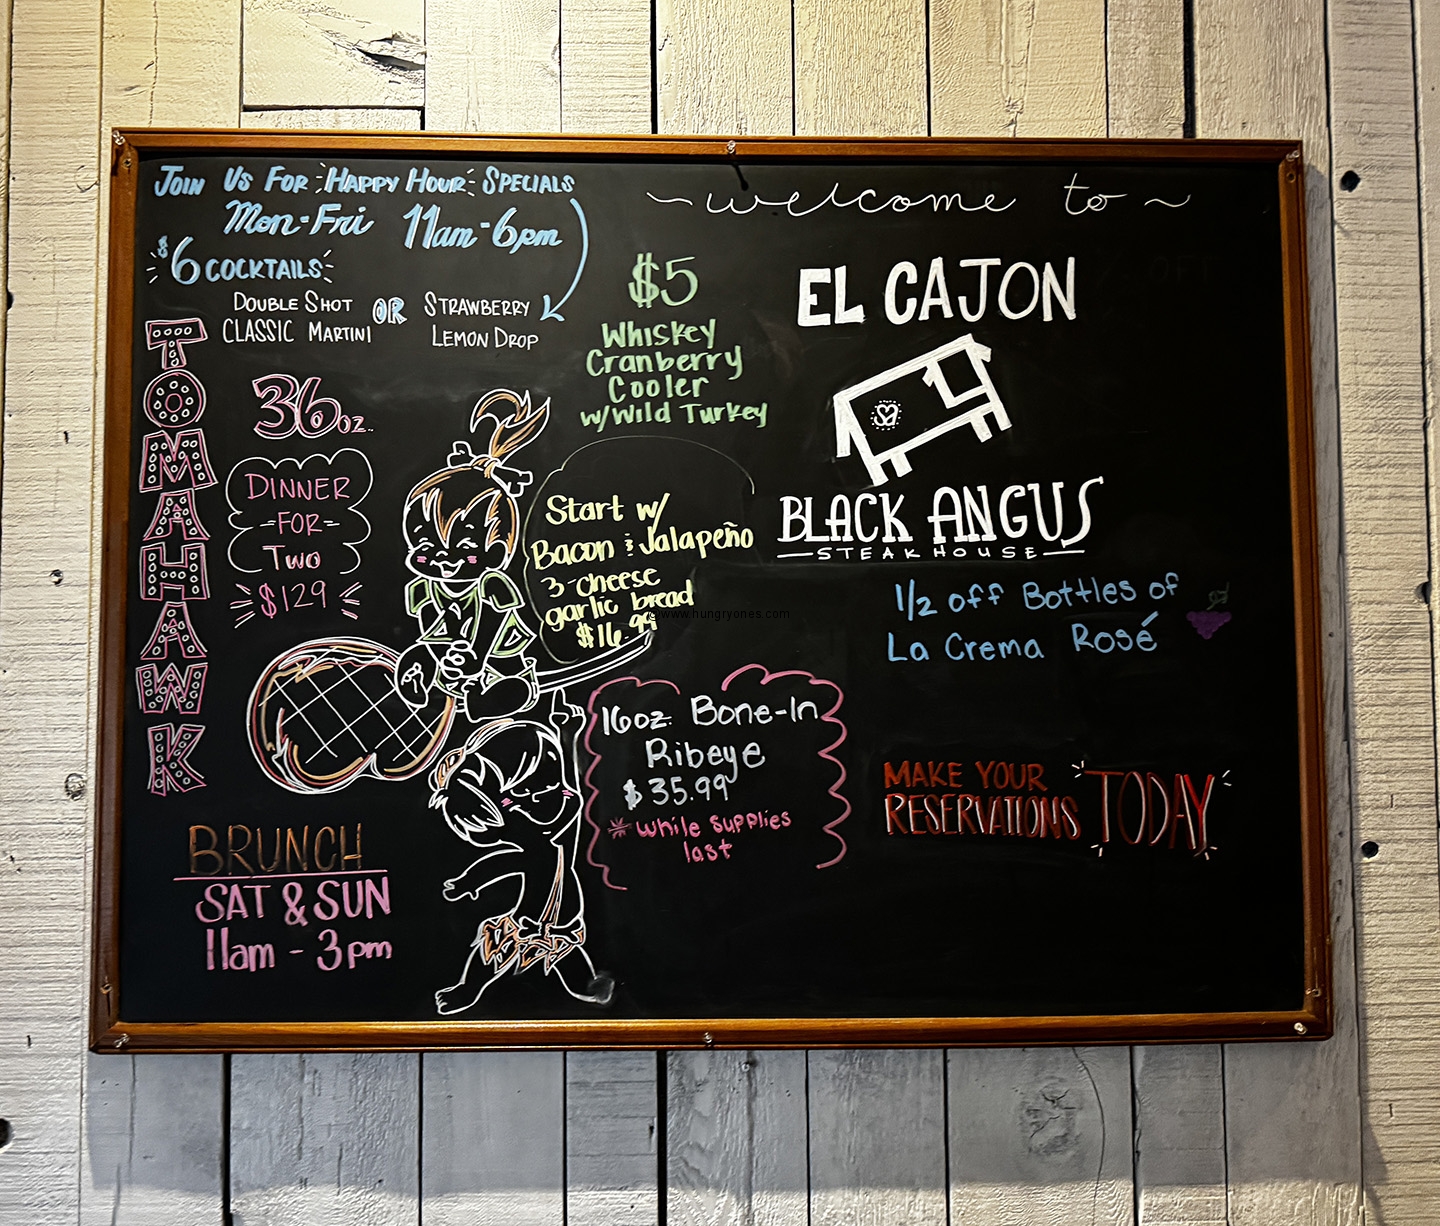 Join Us For Happy Hour Specials
Mon-Fri 11am-6pm
$6 Cocktails
Double Shot
Classic Martini
OR
Strawberry
Lemon Drop
$5
Whiskey
Cranberry
Cooler
w/Wild Turkey
~welcome to~
EL CAJON
BLACK ANGUS
STEAKHOUSE
TOMAHAWK
36oz.
DINNER
-FOR-
Two
$129
Start w/
Bacon & Jalapeño
3-cheese
garlic bread
$16.99
www.hungryones.com
1/2 off Bottles of
La Crema Rosé
16oz. Bone-In
Ribeye
$35.99
* while supplies
last
MAKE YOUR
RESERVATIONS
TODAY
BRUNCH
SAT & SUN
11am - 3pm